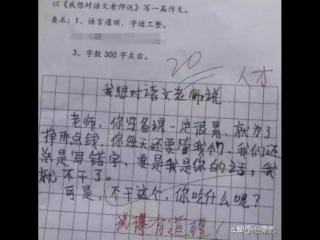 以《我想对语文老师说》写一篇作文。
要求：1、语言通顺，字迹工整。
3、字数300字左右。
20
人才
我想对语文老师说
老师，你写备课一定很累，就为了
挣那点钱，你每天还要管我们，我们还
总是写错字，要是我是你的话，我
就不干了。
可是，不干这个，你吃什么呢？
有道理！
知乎